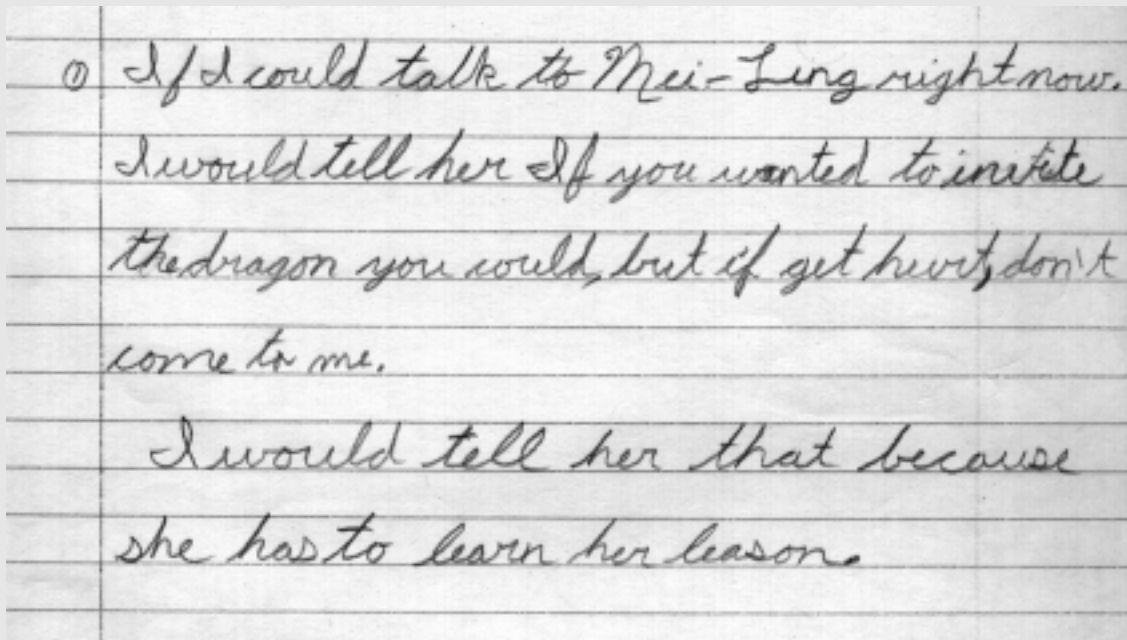 ① If I could talk to Mei-Ling right now.
I would tell her If you wanted to invite
the dragon you could, but if get hurt, don't
come to me.
I would tell her that because
she has to learn her leason.